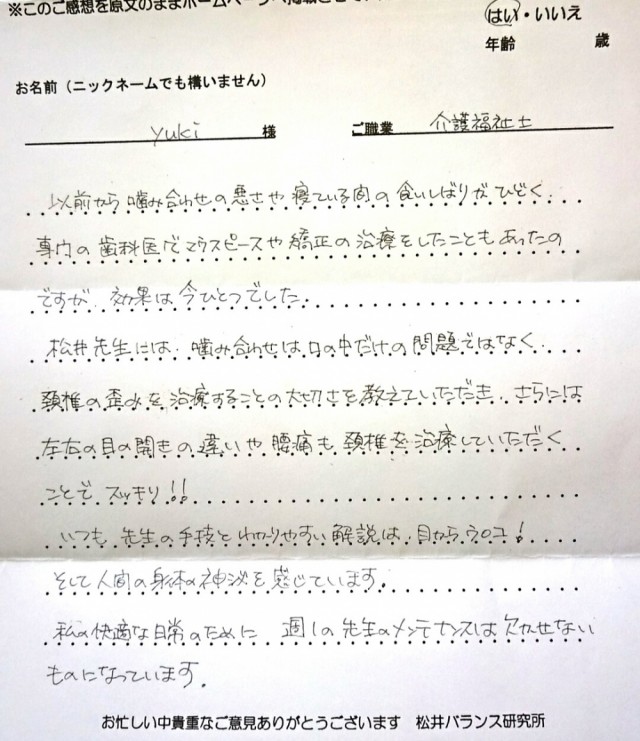 ※このご感想を原文のままホームページへ掲載させて
はい・いいえ
年齢 歳
お名前（ニックネームでも構いません）
yuki 様 ご職業 介護福祉士
以前から噛み合わせの悪さや寝ている間の食いしばりがひどく、
専門の歯科医でマウスピースや矯正の治療をしたこともあったの
ですが、効果は今ひとつでした。
松井先生には、噛み合わせは口の中だけの問題ではなく、
頚椎の歪みを治療することの大切さを教えていただき、さらには
左右の目の開きの違いや腰痛も頚椎を治療していただく
ことで、スッキリ!!
いつも先生の手技とわかりやすい解説は、目からウロコ!
そして人間の身体の神秘を感じています。
私の快適な日常のために、週1の先生のメンテナンスは欠かせない
ものになっています。
お忙しい中貴重なご意見ありがとうございます 松井バランス研究所